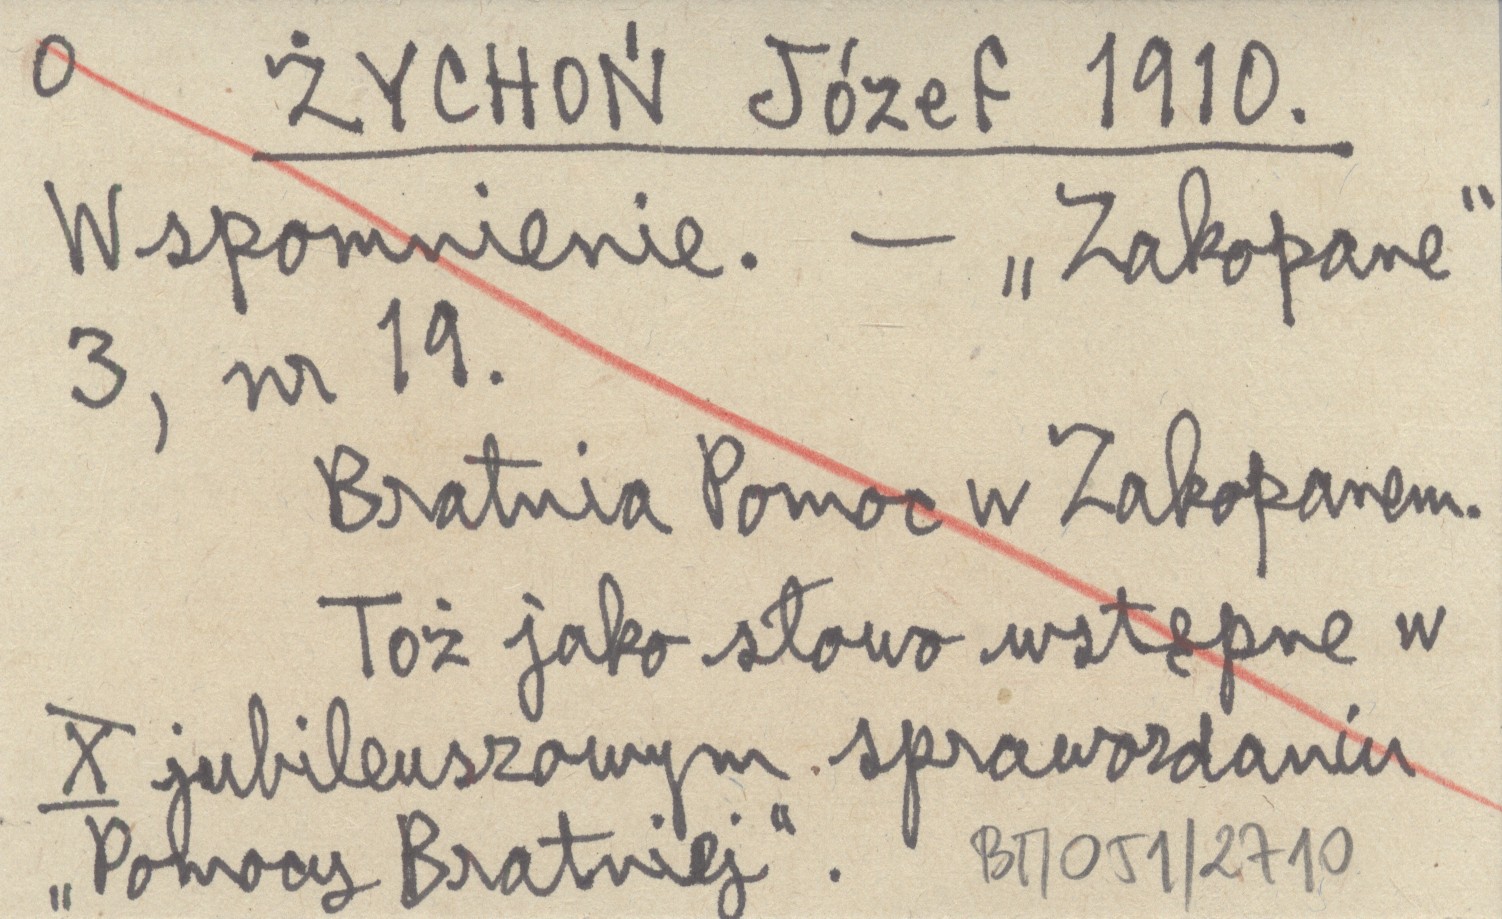 O ŻYCHOŃ Józef 1910.
Wspomnienie. — „Zakopane“
3, nr 19.
Bratnia Pomoc w Zakopanem.
Toż jako słowo wstępne w
X jubileuszowym sprawozdaniu
„Pomocy Bratniej“.
BT/OJ1/2710